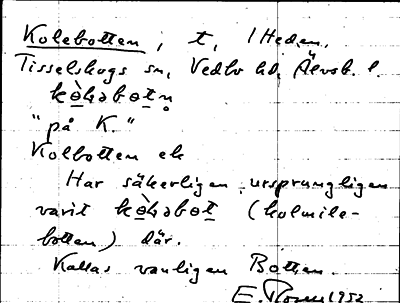 Kolebotten, t, l Heden,
Tisselskogs sn, Vedbo hd, Älvsb. l.
kò̱ləbo̱tn̥
"på K."
Kolbotten ek
Har säkerligen ursprungligen
varit kò̱ləbo̱t (kolmile-
botten) där.
Kallas vanligen Botten.
E. 1952